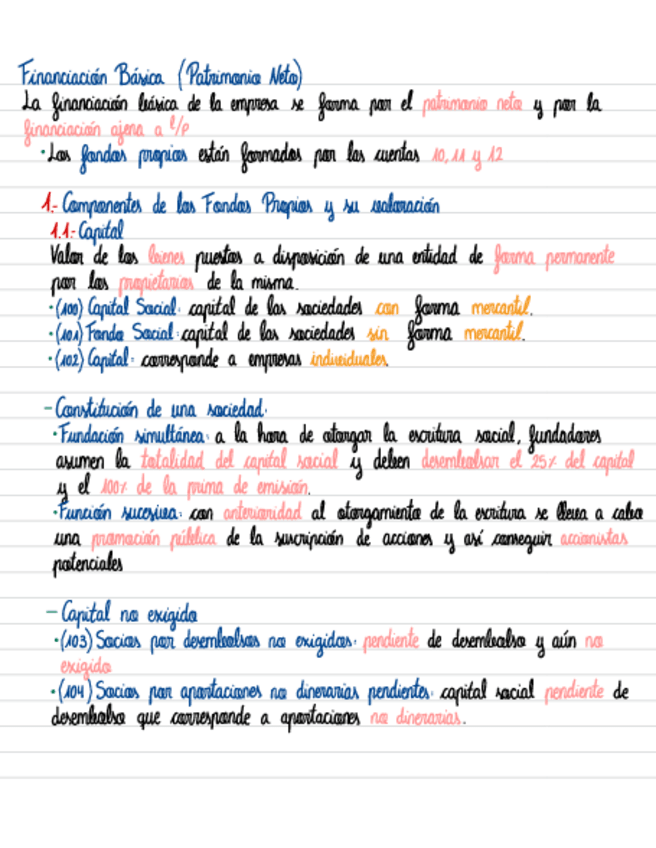 Financiación Básica (Patrimonio Neto)
La financiación básica de la empresa se forma por el patrimonio neto y por la
financiación ajena a l/p
·Los fondos propios están formados por las cuentas 10, 11 y 12
1.- Componentes de los Fondos Propios y su valoración
1.1.- Capital
Valor de los bienes puestos a disposición de una entidad de forma permanente
por los propietarios de la misma.
·(100) Capital Social: capital de las sociedades con forma mercantil.
·(101) Fondo Social: capital de las sociedades sin forma mercantil.
·(102) Capital: corresponde a empresas individuales.
- Constitución de una sociedad:
·Fundación simultánea: a la hora de otorgar la escritura social, fundadores
asumen la totalidad del capital social y deben desembolsar el 25% del capital
y el 100% de la prima de emisión.
·Función sucesiva: con anterioridad al otorgamiento de la escritura se lleva a cabo
una promoción pública de la suscripción de acciones y así conseguir accionistas
potenciales
- Capital no exigido
·(103) Socios por desembolsos no exigidos: pendiente de desembolso y aún no
exigido
·(104) Socios por aportaciones no dinerarias pendientes: capital social pendiente de
desembolso que corresponde a aportaciones no dinerarias.